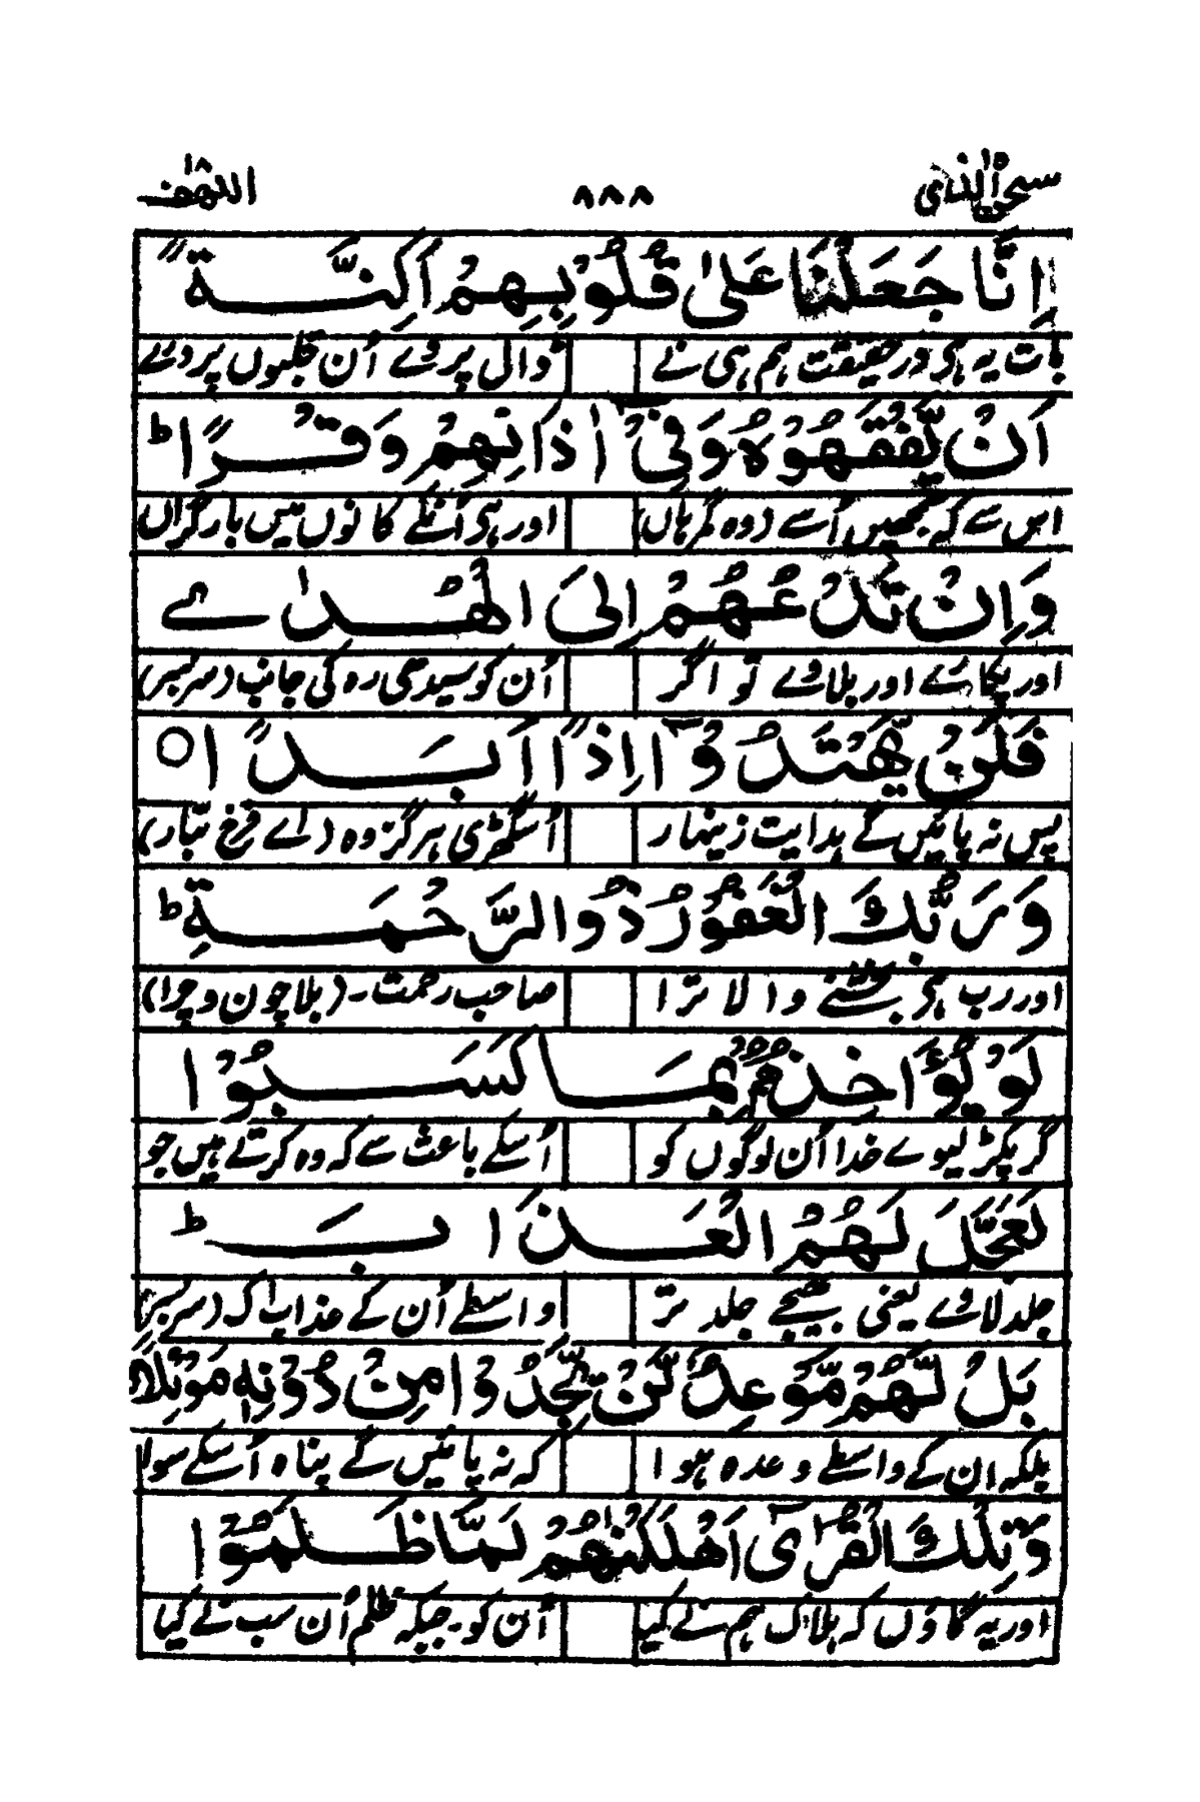 سبحن الذی ۱۵ ۸۸۸ الکهف ۱۸
اِنَّا جَعَلْنَا عَلٰى قُلُوْبِهِمْ اَكِنَّةً
بات یہ ہی در حقیقت ہم ہی نے ڈالی پردے اُن قلبوں پر دلے
اَنْ يَّفْقَهُوْهُ وَفِىْٓ اٰذَانِهِمْ وَقْرًا ؕ
اس سے کہ سمجھیں اُسے (وہ گمرہاں اور ہی اُنکے کانوں میں بار گراں
وَاِنْ تَدْعُهُمْ اِلَى الْهُدٰے
اور پکارے اور بلاوے تو اگر اُن کو سیدھی رہ کی جانب (سربسر)
فَلَنْ يَّهْتَدُوْٓا اِذًا اَبَدًا ○
پس نہ پائیں گے ہدایت زینہار اُسگھڑی ہرگز وہ (اے فرخ تبار)
وَرَبُّكَ الْغَفُوْرُ ذُو الرَّحْمَةِ ؕ
اور رب ہی بخشنے والا ترا صاحب رحمت۔ (بلا چون و چرا)
لَوْ يُؤَاخِذُهُمْ بِمَا كَسَبُوْا
گر پکڑ لیوے خدا اُن لوگوں کو اُسکے باعث سے کہ وہ کرتے ہیں جو
لَعَجَّلَ لَهُمُ الْعَذَابَ ؕ
جلد لاوے یعنی بھیجے جلد تر واسطے اُن کے عذاب اک (سربسر)
بَلْ لَّهُمْ مَّوْعِدٌ لَّنْ يَّجِدُوْا مِنْ دُوْنِهٖ مَوْئِلًا
بلکہ ان کے واسطے وعدہ ہوا کہ نہ پائیں گے پناہ اُسکے سوا
وَتِلْكَ الْقُرٰٓى اَهْلَكْنٰهُمْ لَمَّا ظَلَمُوْا
اور یہ گاؤں کہ ہلاک ہم نے کیا اُن کو۔ جبکہ ظلم اُن سب نے کیا